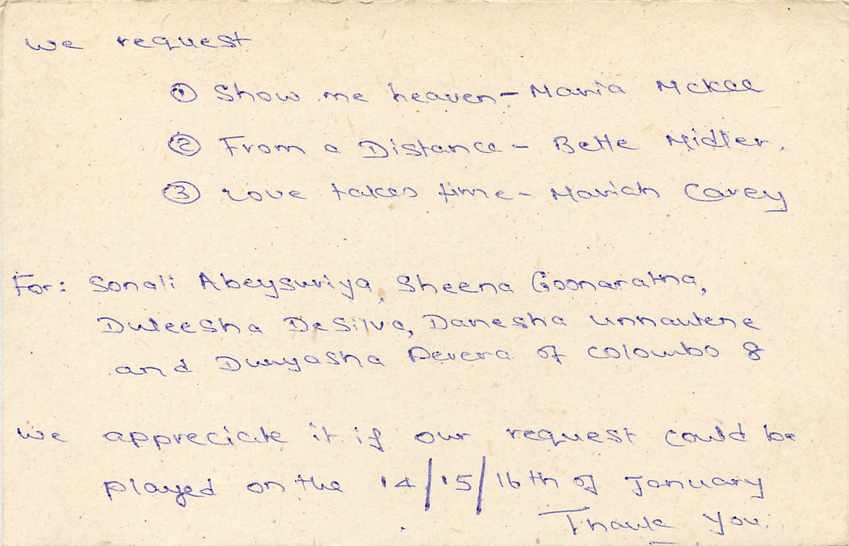 We request
① Show me heaven - Maria McKee
② From a Distance - Bette Midler.
③ Love takes time - Mariah Carey
For: Sonali Abeysuriya, Sheena Goonaratna,
Duleesha DeSilva, Danesha Unnantene
and Duvyasha Perera of Colombo 8
We appreciate it if our request could be
played on the 14/15/16th of January
Thank you.